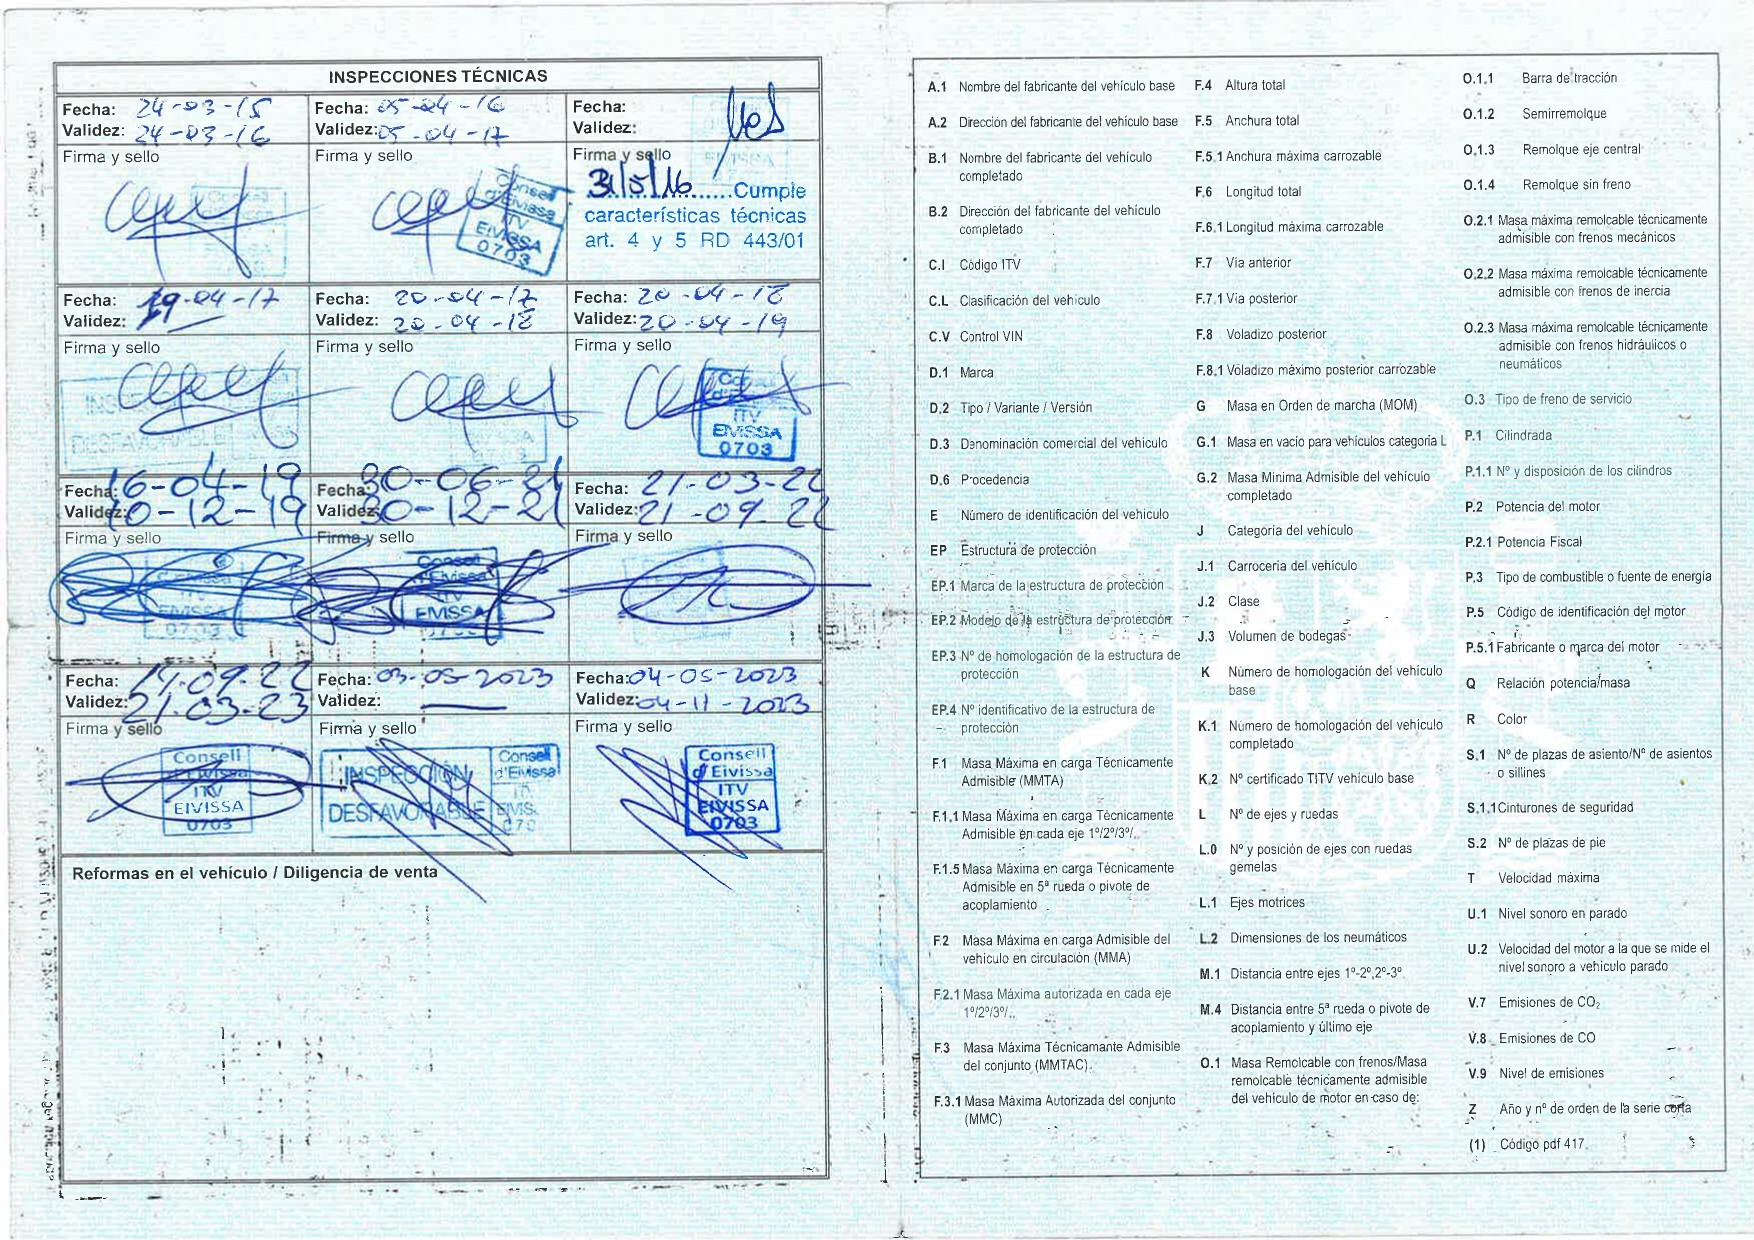 INSPECCIONES TÉCNICAS
Fecha: 24-03-15
Validez: 24-03-16
Firma y sello
Fecha: 05-04-16
Validez: 05-04-17
Firma y sello
Consell
d'Eivissa
ITV
EIVISSA
0703
Fecha:
Validez:
Firma y sello
31/5/16......Cumple
características técnicas
art. 4 y 5 RD 443/01
Fecha: 19-04-17
Validez:
Firma y sello
DESFAVORABLE
Fecha: 20-04-17
Validez: 20-04-18
Firma y sello
Fecha: 20-04-18
Validez: 20-04-19
Firma y sello
ITV
EIVISSA
0703
Fecha: 16-04-19
Validez: 16-12-19
Firma y sello
ITV
EIVISSA
0703
Fecha: 30-06-21
Validez: 30-12-21
Firma y sello
Consell
d'Eivissa
ITV
EIVISSA
Fecha: 21-03-22
Validez: 21-09-22
Firma y sello
Fecha: 14-09-22
Validez: 21-03-23
Firma y sello
Consell
d'Eivissa
ITV
EIVISSA
0703
Fecha: 03-05-2023
Validez:
Firma y sello
INSPECCIÓN
DESFAVORABLE
Consell
d'Eivissa
Fecha: 04-05-2023
Validez: 04-11-2023
Firma y sello
Consell
d'Eivissa
ITV
EIVISSA
0703
Reformas en el vehículo / Diligencia de venta
A.1 Nombre del fabricante del vehículo base
A.2 Dirección del fabricante del vehículo base
B.1 Nombre del fabricante del vehículo
completado
B.2 Dirección del fabricante del vehículo
completado
C.I Código ITV
C.L Clasificación del vehículo
C.V Control VIN
D.1 Marca
D.2 Tipo / Variante / Versión
D.3 Denominación comercial del vehículo
D.6 Procedencia
E Número de identificación del vehículo
EP Estructura de protección
EP.1 Marca de la estructura de protección
EP.2 Modelo de la estructura de protección
EP.3 Nº de homologación de la estructura de
protección
EP.4 Nº identificativo de la estructura de
protección
F.1 Masa Máxima en carga Técnicamente
Admisible (MMTA)
F.1.1 Masa Máxima en carga Técnicamente
Admisible en cada eje 1º/2º/3º/..
F.1.5 Masa Máxima en carga Técnicamente
Admisible en 5ª rueda o pivote de
acoplamiento
F.2 Masa Máxima en carga Admisible del
vehículo en circulación (MMA)
F.2.1 Masa Máxima autorizada en cada eje
1º/2º/3º/..
F.3 Masa Máxima Técnicamante Admisible
del conjunto (MMTAC).
F.3.1 Masa Máxima Autorizada del conjunto
(MMC)
F.4 Altura total
F.5 Anchura total
F.5.1 Anchura máxima carrozable
F.6 Longitud total
F.6.1 Longitud máxima carrozable
F.7 Vía anterior
F.7.1 Vía posterior
F.8 Voladizo posterior
F.8.1 Voladizo máximo posterior carrozable
G Masa en Orden de marcha (MOM)
G.1 Masa en vacío para vehículos categoría L
G.2 Masa Mínima Admisible del vehículo
completado
J Categoría del vehículo
J.1 Carrocería del vehículo
J.2 Clase
J.3 Volumen de bodegas
K Número de homologación del vehículo
base
K.1 Número de homologación del vehículo
completado
K.2 Nº certificado TITV vehículo base
L Nº de ejes y ruedas
L.0 Nº y posición de ejes con ruedas
gemelas
L.1 Ejes motrices
L.2 Dimensiones de los neumáticos
M.1 Distancia entre ejes 1º-2º,2º-3º.
M.4 Distancia entre 5ª rueda o pivote de
acoplamiento y último eje
O.1 Masa Remolcable con frenos/Masa
remolcable técnicamente admisible
del vehículo de motor en caso de:
O.1.1 Barra de tracción
O.1.2 Semirremolque
O.1.3 Remolque eje central
O.1.4 Remolque sin freno
O.2.1 Masa máxima remolcable técnicamente
admisible con frenos mecánicos
O.2.2 Masa máxima remolcable técnicamente
admisible con frenos de inercia
O.2.3 Masa máxima remolcable técnicamente
admisible con frenos hidráulicos o
neumáticos
O.3 Tipo de freno de servicio
P.1 Cilindrada
P.1.1 Nº y disposición de los cilindros
P.2 Potencia del motor
P.2.1 Potencia Fiscal
P.3 Tipo de combustible o fuente de energía
P.5 Código de identificación del motor
P.5.1 Fabricante o marca del motor
Q Relación potencia/masa
R Color
S.1 Nº de plazas de asiento/Nº de asientos
o sillines
S.1.1 Cinturones de seguridad
S.2 Nº de plazas de pie
T Velocidad máxima
U.1 Nivel sonoro en parado
U.2 Velocidad del motor a la que se mide el
nivel sonoro a vehículo parado
V.7 Emisiones de CO₂
V.8 Emisiones de CO
V.9 Nivel de emisiones
Z Año y nº de orden de la serie corta
(1) Código pdf 417.